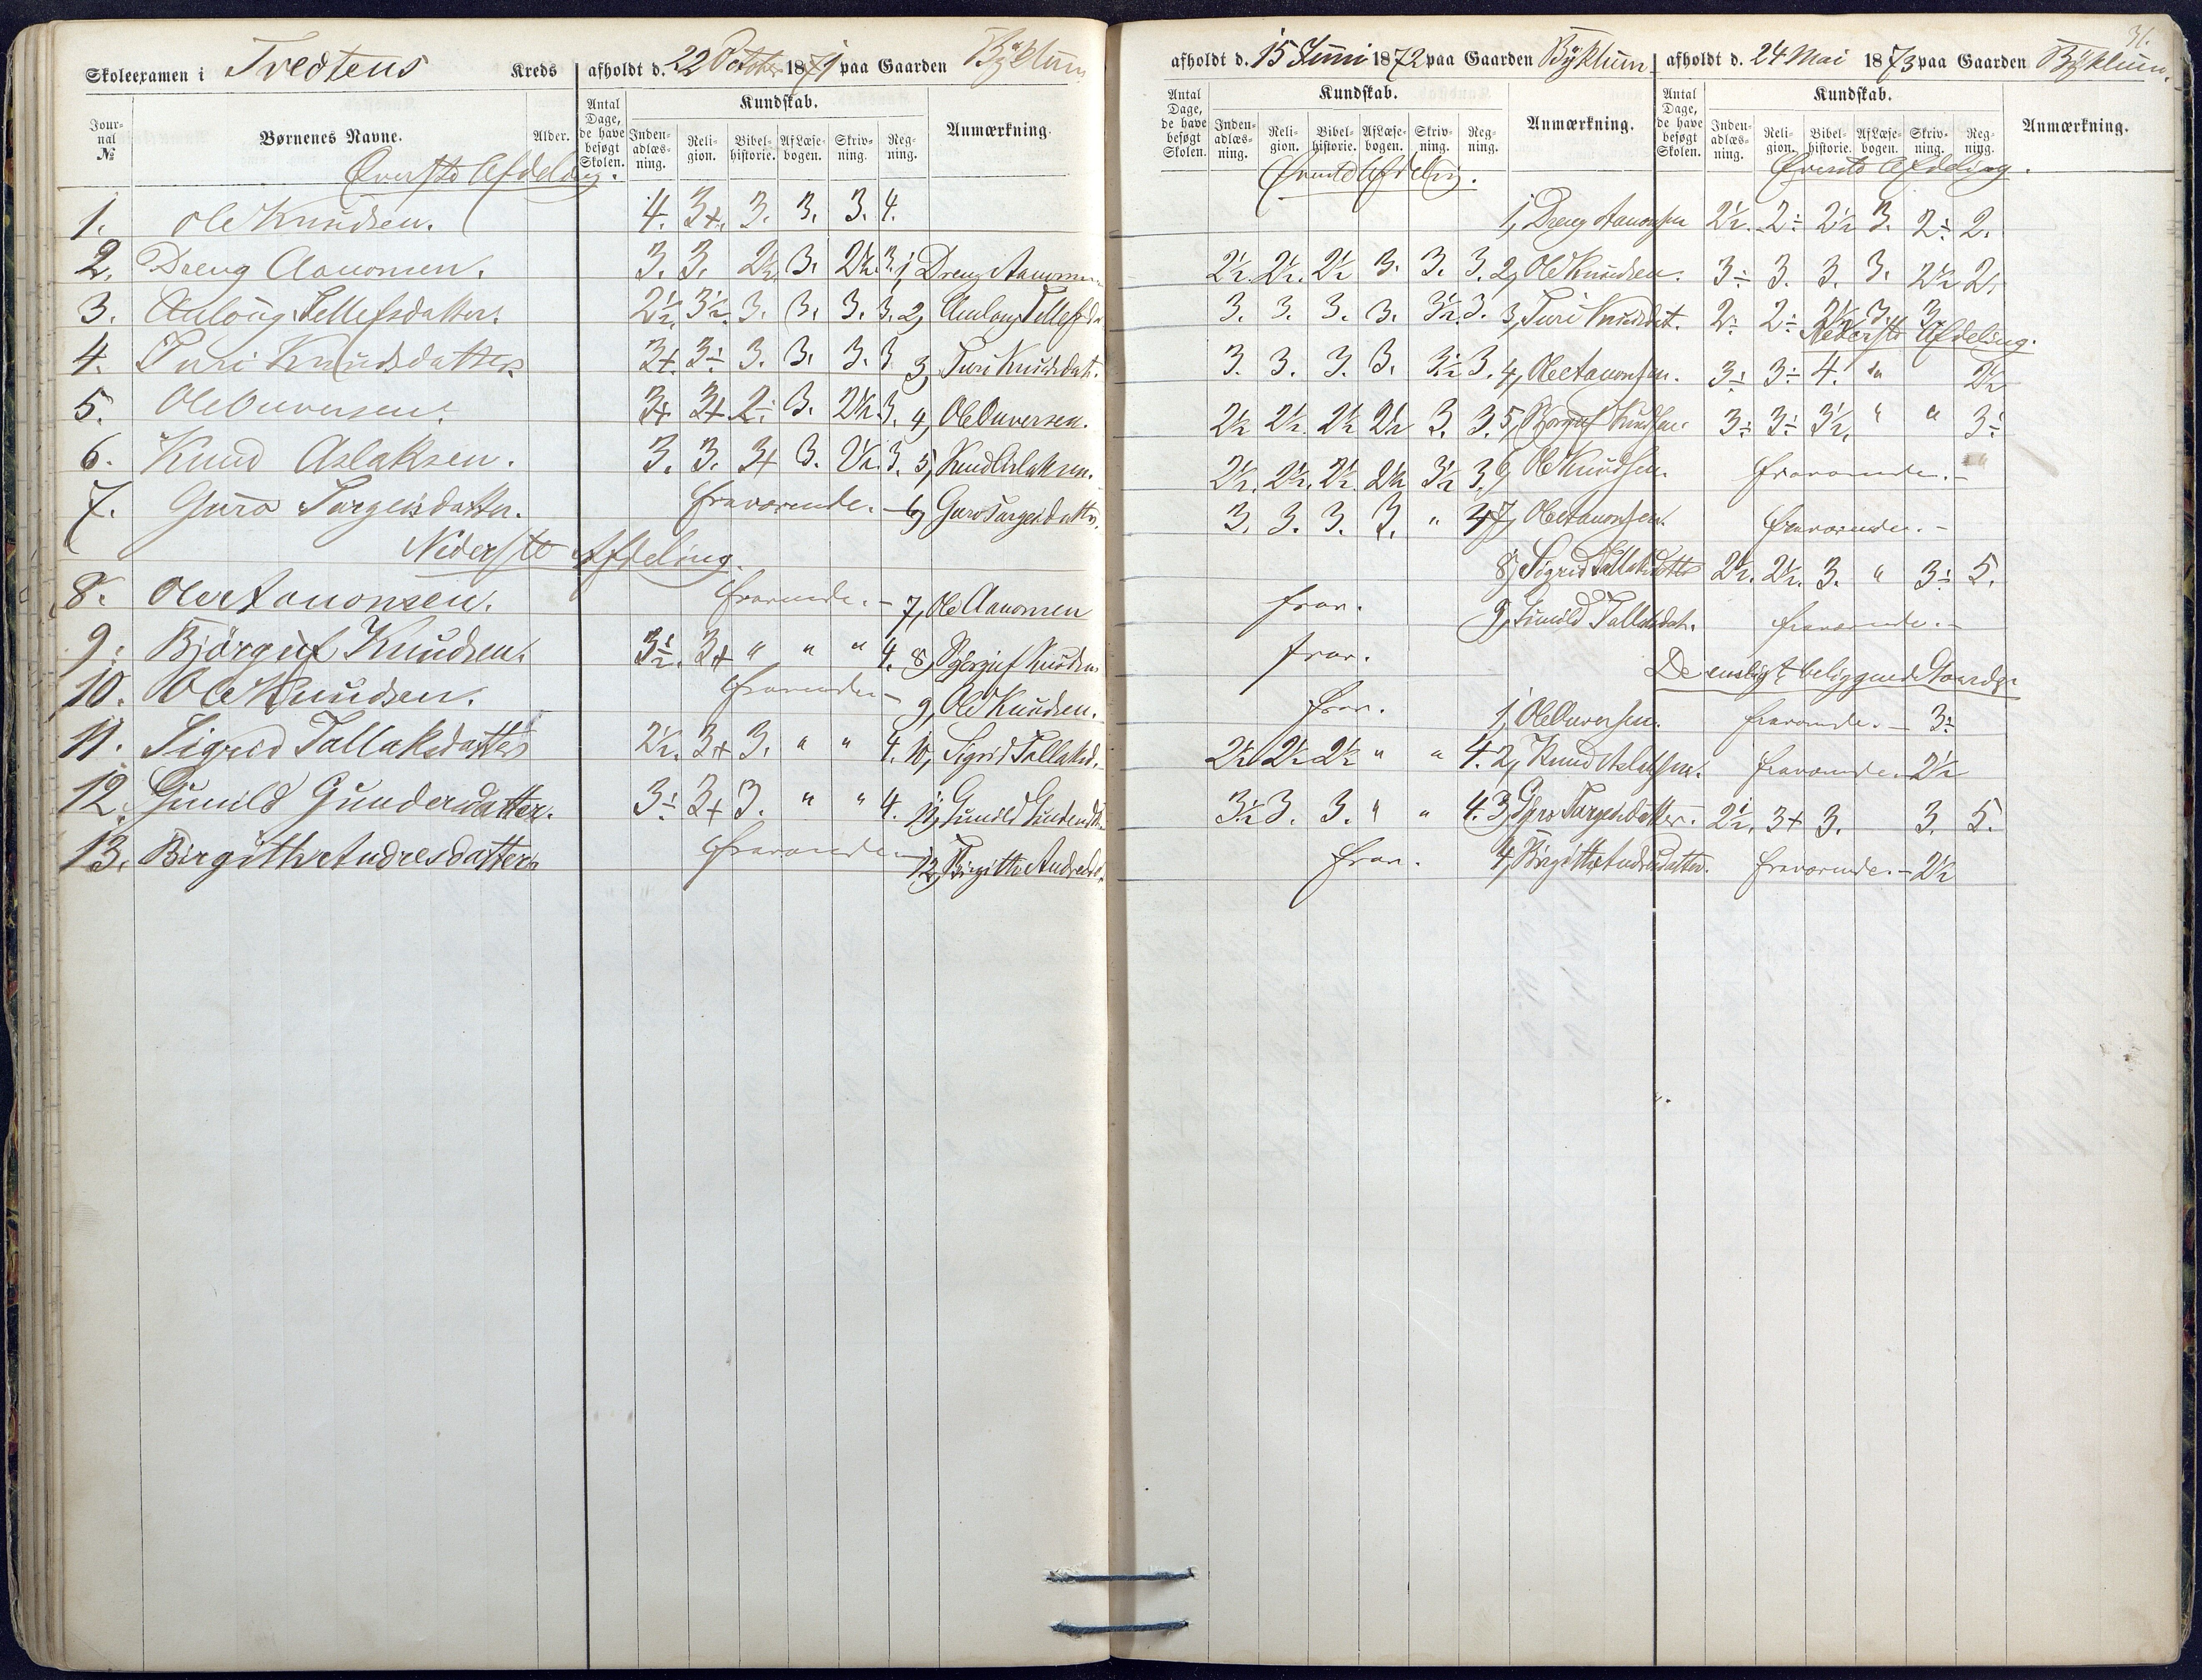 31.
Skoleexamen i Tvedtens Kreds afholdt d. 22 October 1871 paa Gaarden Byklum
afholdt d. 15 Juni 1872 paa Gaarden Byklum. afholdt d. 24 Mai 1873 paa Gaarden Byklum.
Journal № Børnenes Navne. Alder. Antal Dage, de have besøgt Skolen. Kundskab. Indenadlæsning. Religion. Bibelhistorie. Af Læsebogen. Skrivning. Regning. Anmærkning.
Antal Dage, de have besøgt Skolen. Kundskab. Indenadlæsning. Religion. Bibelhistorie. Af Læsebogen. Skrivning. Regning. Anmærkning.
Antal Dage, de have besøgt Skolen. Kundskab. Indenadlæsning. Religion. Bibelhistorie. Af Læsebogen. Skrivning. Regning. Anmærkning.
Øverste Afdeling.
1. Ole Knudsen. 4. 3+. 3. 3. 3. 4.
2. Dreng Aanonsen. 3. 3. 2½. 3. 2½. 3. 1, Dreng Aanonsen
3. Anlaug Tellefsdatter. 2½. 3½. 3. 3. 3. 3. 2, Anlaug Tellefsda
4. Turi Knudsdatter 3+. 3÷ 3. 3. 3. 3. 3, Turi Knudsdatt.
5. Ole Ouversen. 3+ 3+ 2÷ 3. 2½ 3. 4, Ole Ouversen.
6. Knud Aslaksen. 3. 3. 3+ 3. 2½. 3. 5, Knud Aslaksen.
7. Guro Targeisdatter. fraværende. – 6, Guro Targeisdatter.
Nederste Afdeling.
8. Ole Aanonsen. fravrende. – 7, Ole Aanonsen
9. Björguf Knudsen. 3½. 3+ " " " 4. 8, Björguf Knudsen
10. Ole Knudsen. fravrende – 9, Ole Knudsen.
11. Sigrid Tallaksdatter 2½. 3+ 3. " " 4. 10, Sigrid Tallaksd.
12. Gunild Gundersdatter. 3÷ 3+ 3. " " 4. 11, Gunild Gundersd
13. Birgithe Andresdatter fraværende – 12, Birgitte Andresd.
Øverste Afdeling.
1, Dreng Aanonsen
2½. 2½. 2½ 3. 3. 3. 2, Ole Knudsen.
3. 3. 3. 3. 3½. 3. 3, Turi Knudsdat.
3. 3. 3. 3. 3½ 3. 4, Ole Aanonsen.
2½ 2½. 2½ 2½ 3. 3. 5, Björguf Knudsen.
2½. 2½. 2½. 2½ 3½ 3. 6, Ole Knudsen.
3. 3. 3. 3. " 7, Ole Aanonsen.
8, Sigrid Tallaksdatter
frav. 9, Gunild Tallaksdat.
frav.
frav. 1, Ole Ouversen.
2½ 2½ 2½ " " 4. 2, Knud Aslaksen.
3½ 3. 3. " " 4. 3, Guro Targeisdatter.
frav. 4, Birgitthe Andresdatter.
Øverste Afdeling.
2½. 2÷ 2½ 3. 2÷ 2.
3÷ 3. 3. 3. 2½ 2.
2÷ 2÷ 2½ 3. 3.
Nederste Afdeling.
3÷ 3÷ 4. " 2½
3÷ 3÷ 3½. " " 3÷
fraværende. –
fraværende. –
2½. 2½. 3. " 3÷ 5.
fraværende. –
De ensligt beliggende Gaarde.
fraværende. – 3÷
fraværende. 2½
2½. 3+ 3. 3. 5.
fraværende. – 2½